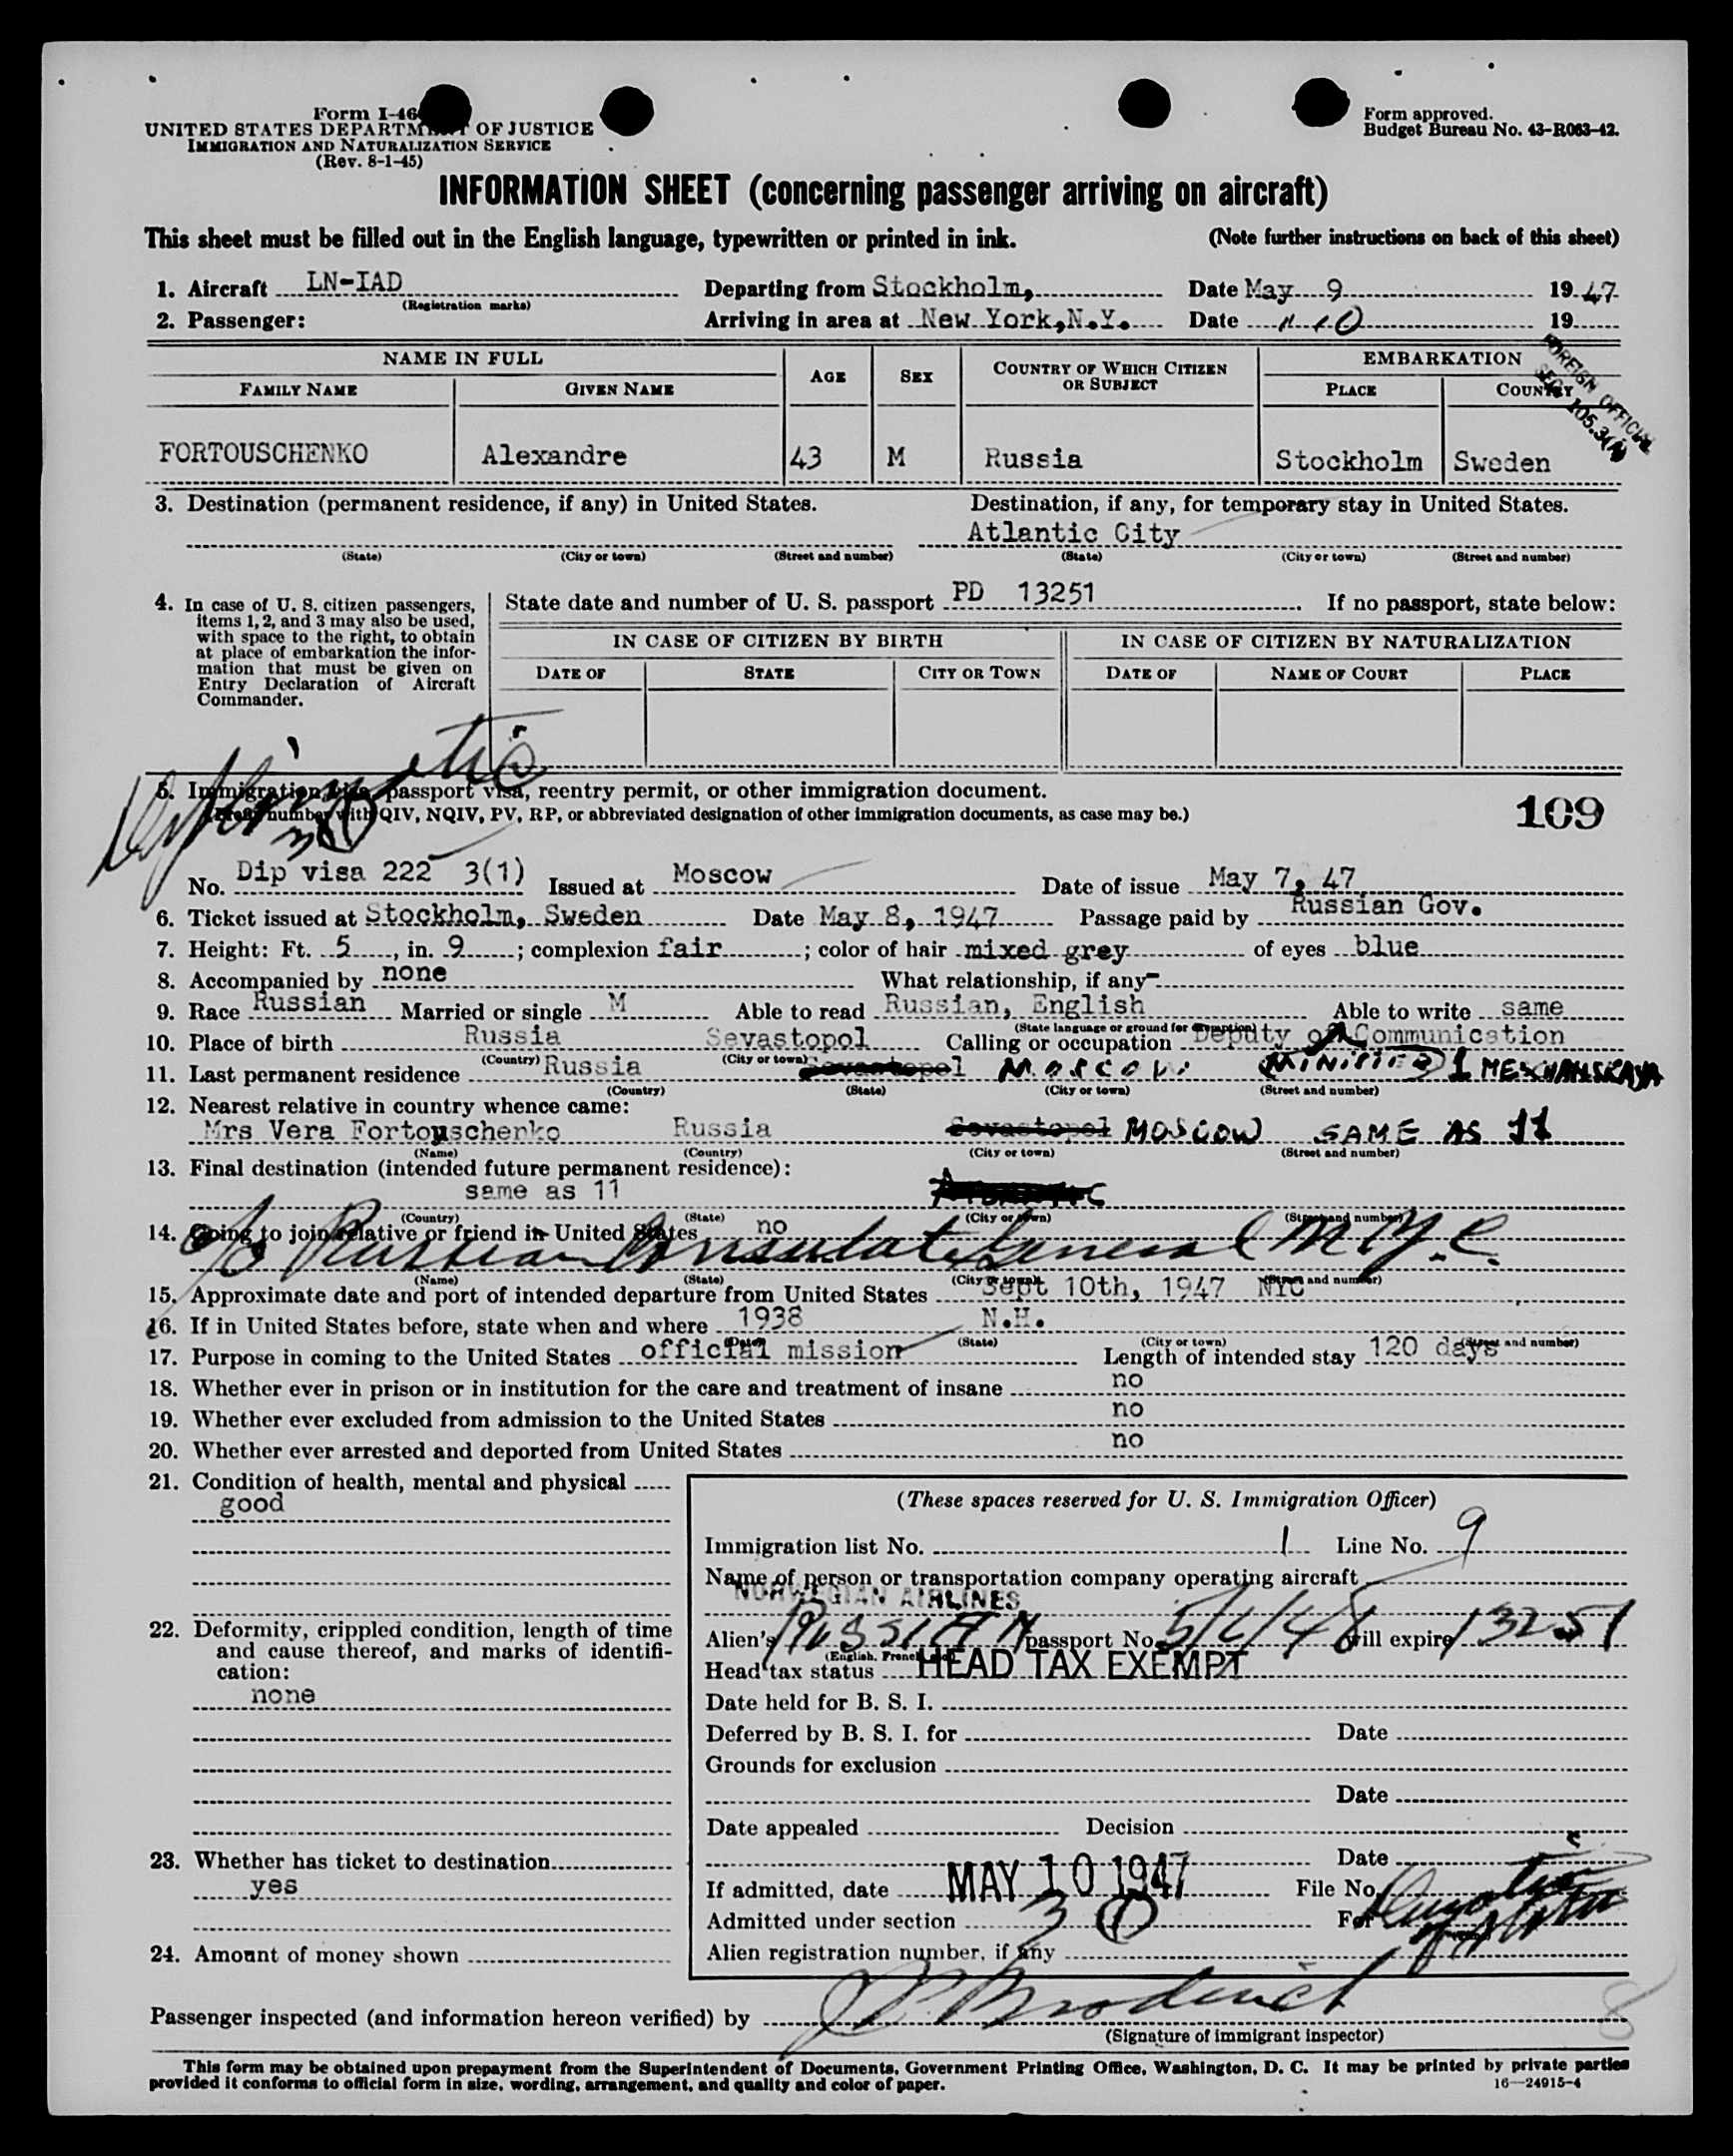 Form I-46
UNITED STATES DEPARTMENT OF JUSTICE
IMMIGRATION AND NATURALIZATION SERVICE
(Rev. 8-1-45)
Form approved.
Budget Bureau No. 43-R063-42.
INFORMATION SHEET (concerning passenger arriving on aircraft)
This sheet must be filled out in the English language, typewritten or printed in ink. (Note further instructions on back of this sheet)
1. Aircraft LN-IAD Departing from Stockholm, Date May 9 1947
(Registration marks)
2. Passenger: Arriving in area at New York,N.Y. Date " 10 19
FOREIGN OFFICIAL
SEC. 105.3(A)
NAME IN FULL AGE SEX COUNTRY OF WHICH CITIZEN OR SUBJECT EMBARKATION
FAMILY NAME GIVEN NAME PLACE COUNTRY
FORTOUSCHENKO Alexandre 43 M Russia Stockholm Sweden
3. Destination (permanent residence, if any) in United States. Destination, if any, for temporary stay in United States.
Atlantic City
(State) (City or town) (Street and number) (State) (City or town) (Street and number)
4. In case of U. S. citizen passengers, items 1, 2, and 3 may also be used, with space to the right, to obtain at place of embarkation the information that must be given on Entry Declaration of Aircraft Commander.
State date and number of U. S. passport PD 13251. If no passport, state below:
IN CASE OF CITIZEN BY BIRTH IN CASE OF CITIZEN BY NATURALIZATION
DATE OF STATE CITY OR TOWN DATE OF NAME OF COURT PLACE
Diplomatic
5. Immigration visa, passport visa, reentry permit, or other immigration document.
(Prefix number with QIV, NQIV, PV, RP, or abbreviated designation of other immigration documents, as case may be.)
109
No. Dip visa 222 3(1) Issued at Moscow Date of issue May 7, 47
6. Ticket issued at Stockholm, Sweden Date May 8, 1947 Passage paid by Russian Gov.
7. Height: Ft. 5, in. 9; complexion fair; color of hair mixed grey of eyes blue
8. Accompanied by none What relationship, if any -
9. Race Russian Married or single M Able to read Russian, English Able to write same
(State language or ground for exemption)
10. Place of birth Russia Sevastopol Calling or occupation Deputy of Communication
(Country) (City or town)
11. Last permanent residence Russia Sevastopol MOSCOW MINISTER 1 MESCHANSKAYA
(Country) (State) (City or town) (Street and number)
12. Nearest relative in country whence came:
Mrs Vera Fortouschenko Russia Sevastopol MOSCOW SAME AS 11
(Name) (Country) (City or town) (Street and number)
13. Final destination (intended future permanent residence):
same as 11
(Country) (State) (City or town) (Street and number)
14. Going to join relative or friend in United States no
c/o Russian Consulate General N.Y.C.
(Name) (State) (City or town) (Street and number)
15. Approximate date and port of intended departure from United States Sept 10th, 1947 NYC
16. If in United States before, state when and where 1938 N.H.
(Date) (State) (City or town) (Street and number)
17. Purpose in coming to the United States official mission Length of intended stay 120 days
18. Whether ever in prison or in institution for the care and treatment of insane no
19. Whether ever excluded from admission to the United States no
20. Whether ever arrested and deported from United States no
21. Condition of health, mental and physical
good
22. Deformity, crippled condition, length of time and cause thereof, and marks of identification:
none
23. Whether has ticket to destination
yes
24. Amount of money shown
(These spaces reserved for U. S. Immigration Officer)
Immigration list No. 1 Line No. 9
Name of person or transportation company operating aircraft
NORWEGIAN AIRLINES
Alien's RUSSIAN passport No. 5/6/48 will expire 13251
Head tax status HEAD TAX EXEMPT
Date held for B. S. I.
Deferred by B. S. I. for Date
Grounds for exclusion
Date
Date appealed Decision
Date
If admitted, date MAY 10 1947 File No.
Admitted under section 3 (1) For
Alien registration number, if any
Passenger inspected (and information hereon verified) by
(Signature of immigrant inspector)
8
This form may be obtained upon prepayment from the Superintendent of Documents, Government Printing Office, Washington, D. C. It may be printed by private parties
provided it conforms to official form in size, wording, arrangement, and quality and color of paper.
16—24915-4